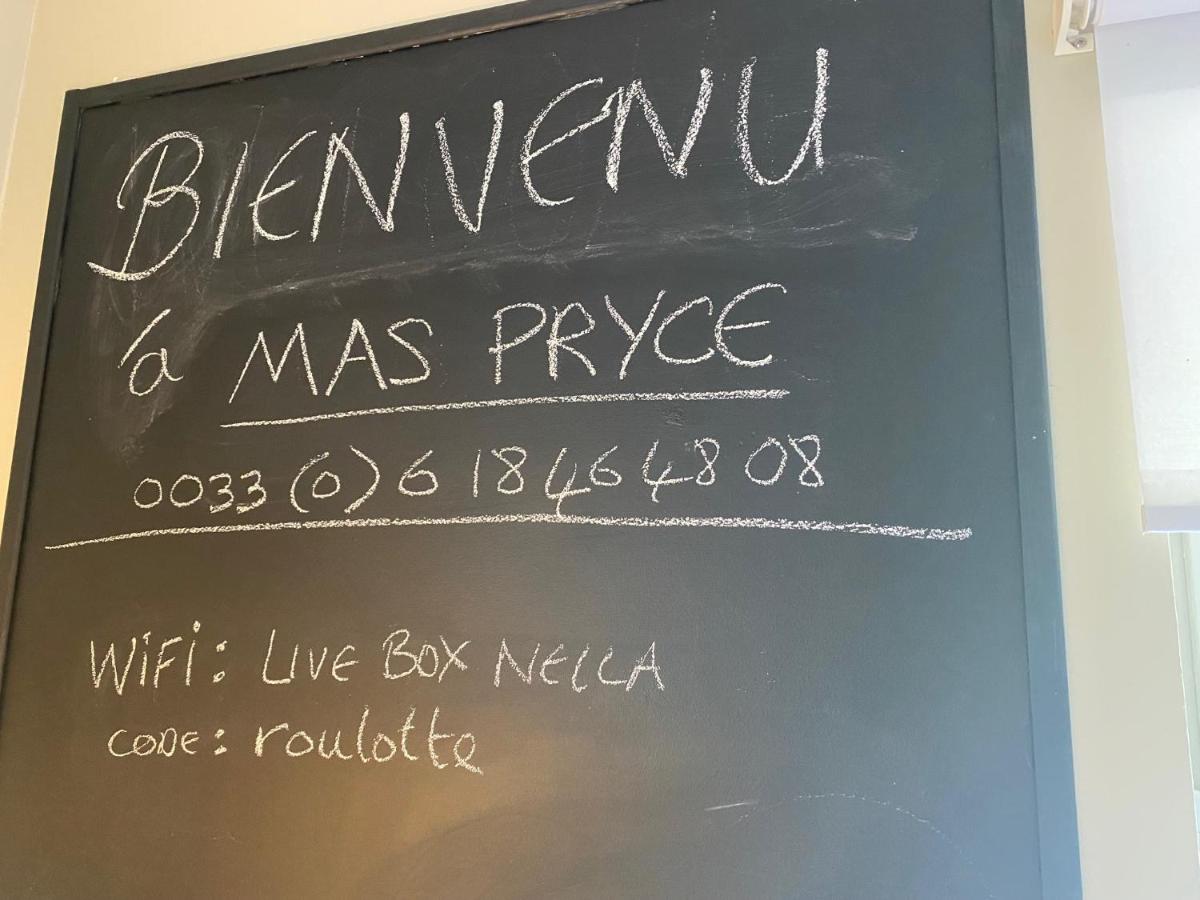 BIENVENU
à MAS PRYCE
0033 (0) 6 18 46 48 08
WiFi: LIVE BOX NELLA
CODE: roulotte